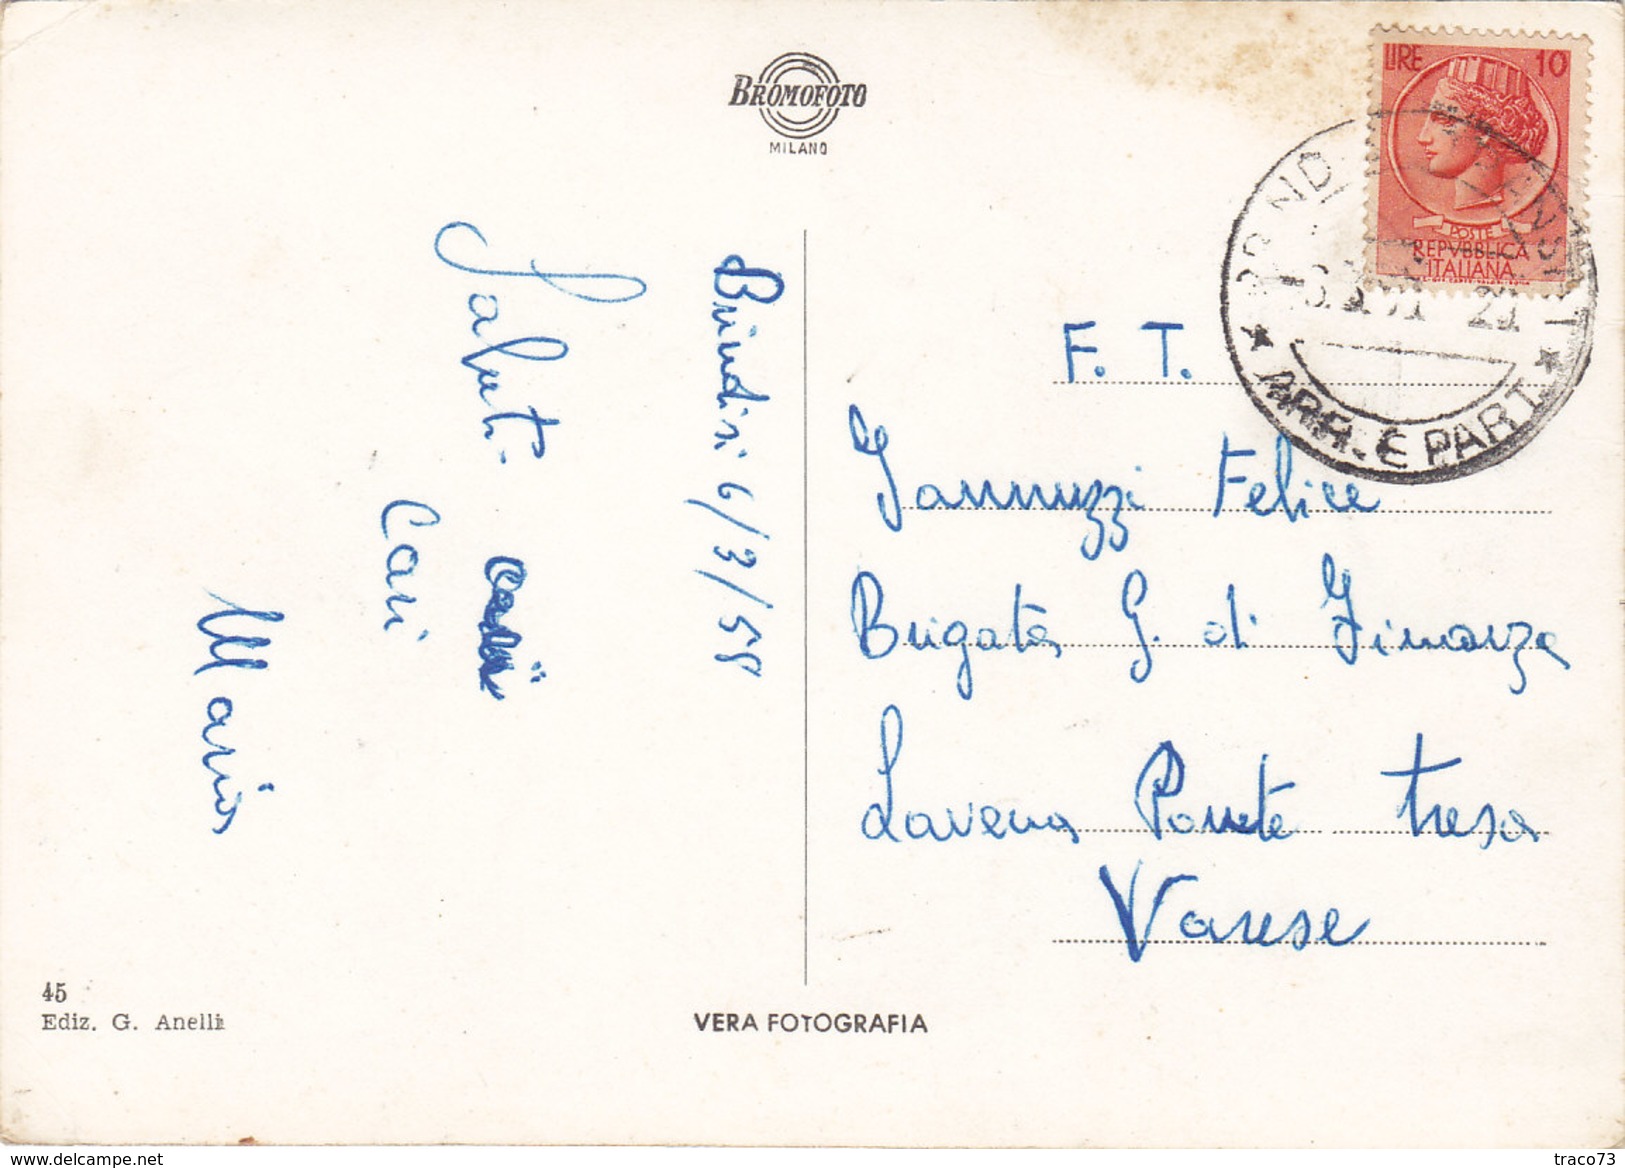 BROMOFOTO
MILANO
LIRE 10
POSTE
REPVBBLICA
ITALIANA
ARR. E PART.
Brindisi 6/3/58
Saluti
Cari
Maria
F. T.
Iannuzzi Felice
Brigata G. di Finanza
Lavena Ponte Tresa
Varese
45
Ediz. G. Anelli
VERA FOTOGRAFIA
www.delcampe.net
traco73